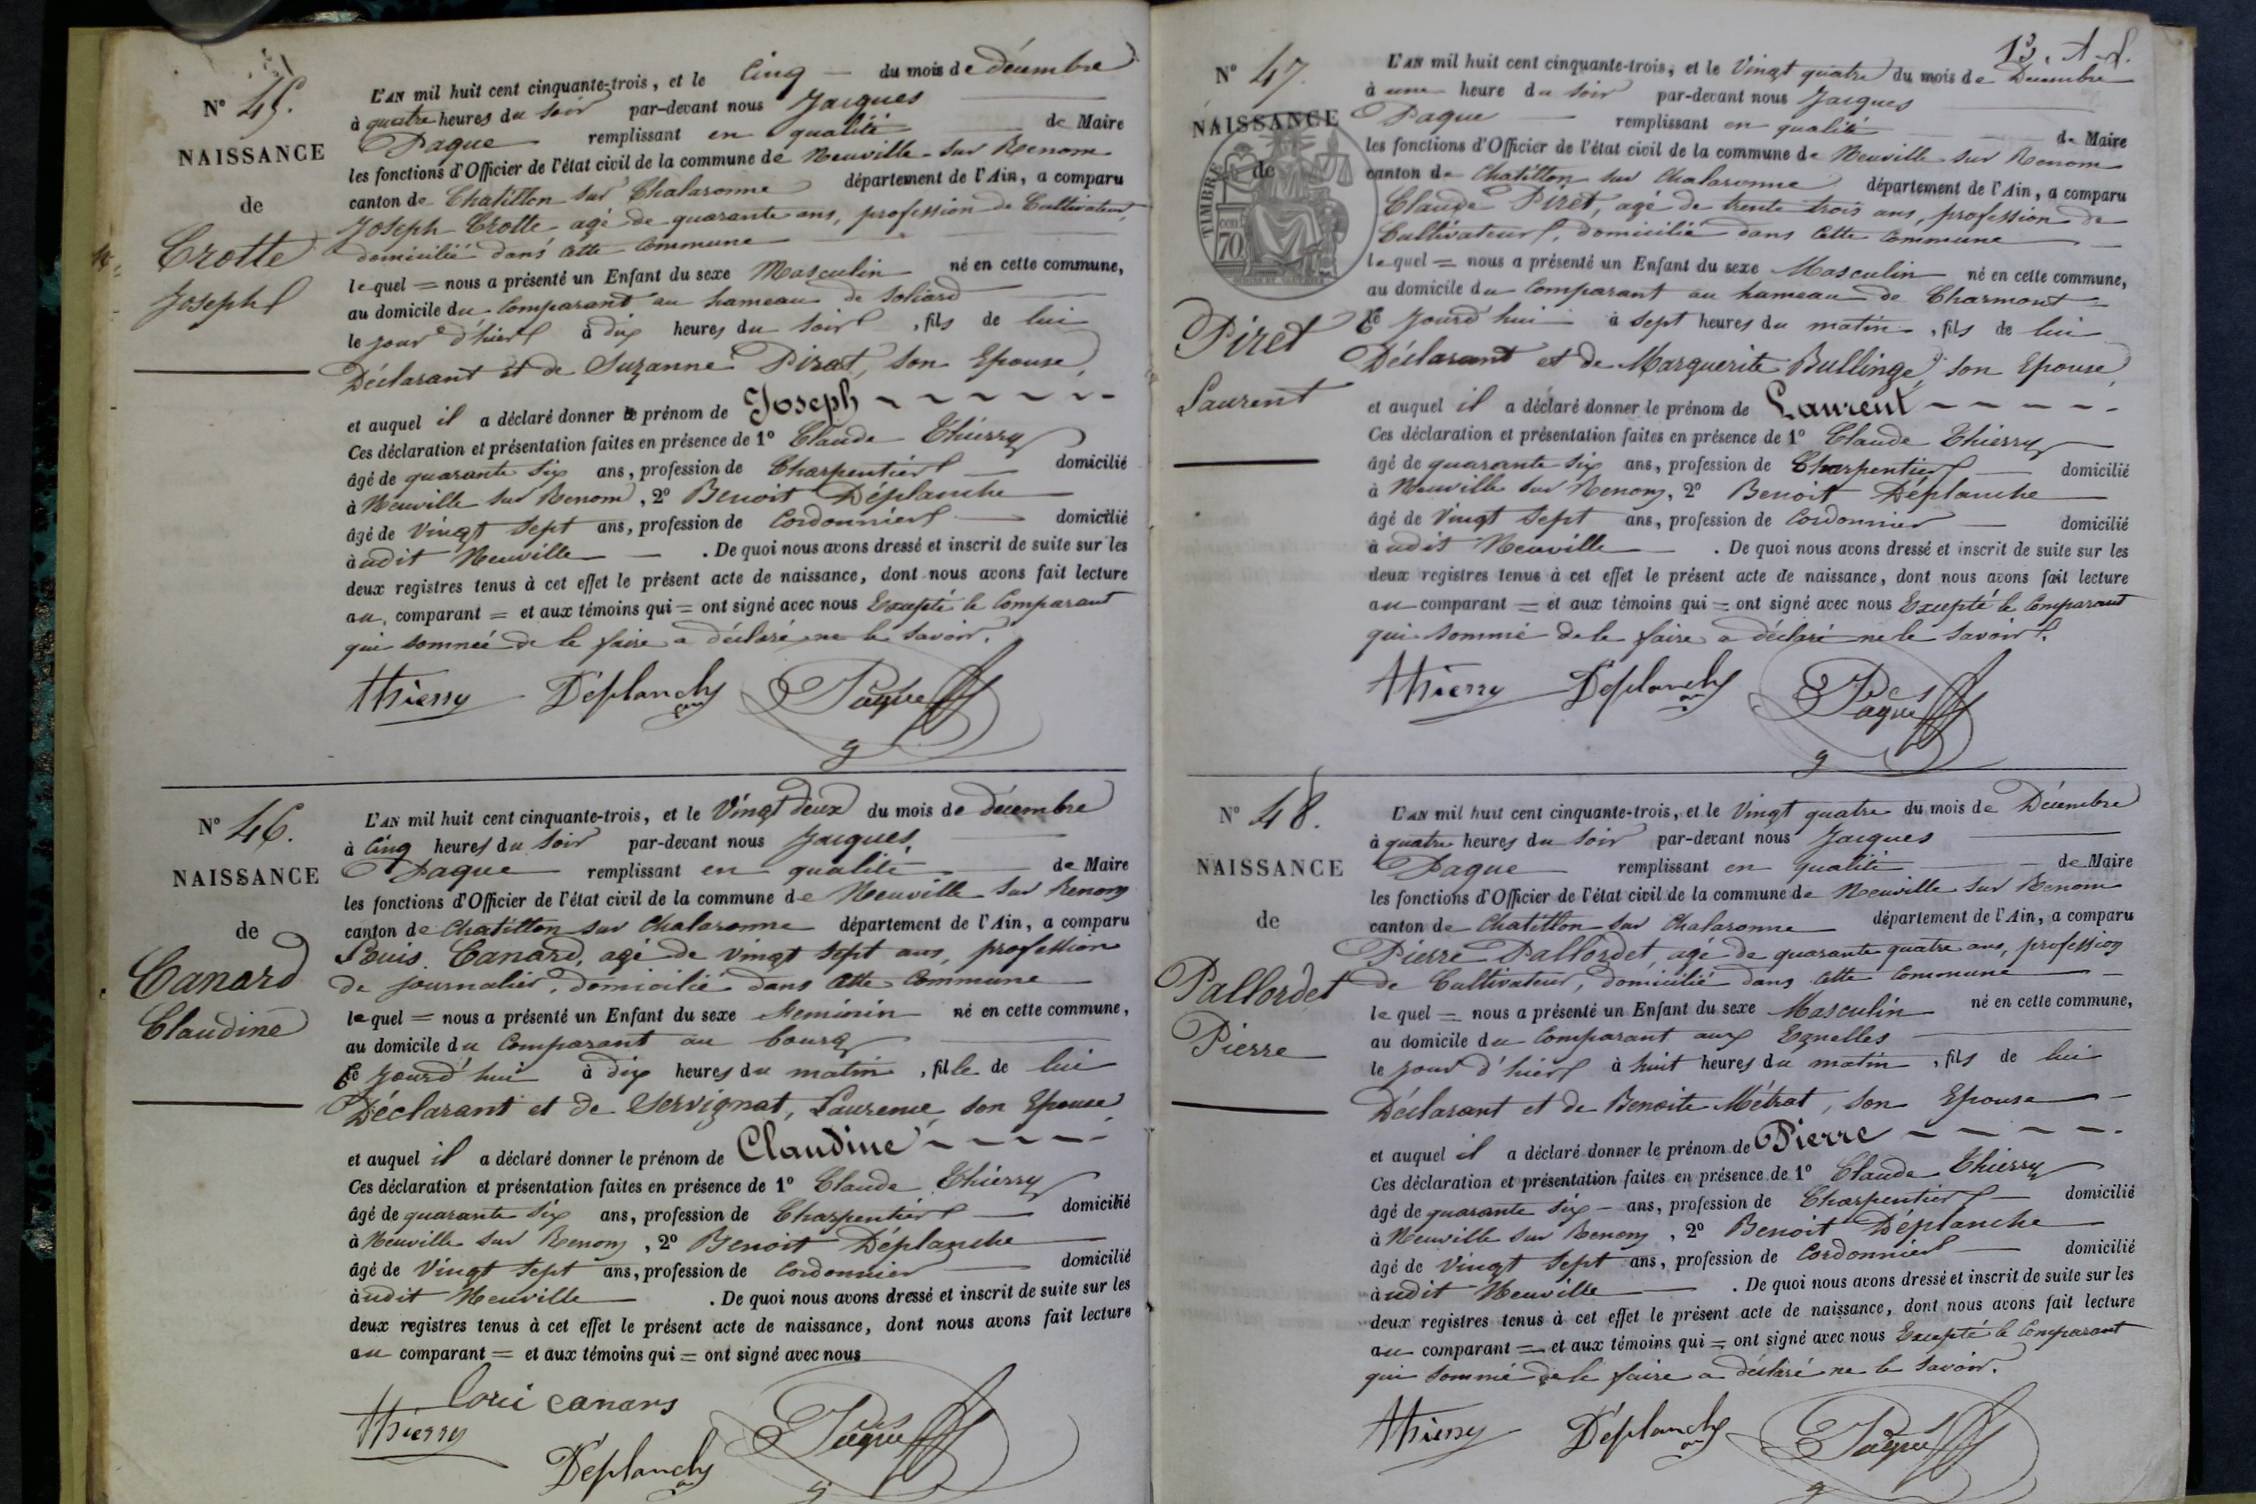 N° 45.
NAISSANCE
de
Crotte
Joseph
L'AN mil huit cent cinquante-trois, et le Cinq du mois de décembre
à quatre heures du soir par-devant nous Jacques
Paque remplissant en qualité de Maire
les fonctions d'Officier de l'état civil de la commune de Neuville sur Renom
canton de Chatillon sur Chalaronne département de l'Ain, a comparu
Joseph Crotte agé de quarante ans, profession de Cultivateur,
domicilié dans cette Commune
lequel = nous a présenté un Enfant du sexe Masculin né en cette commune,
au domicile du Comparant au hameau de Soliard
le jour d'hier à dix heures du soir, fils de lui
Déclarant et de Suzanne Pirat, son Epouse,
et auquel il a déclaré donner le prénom de Joseph
Ces déclaration et présentation faites en présence de 1° Claude Thierry
âgé de quarante six ans, profession de Charpentier domicilié
à Neuville sur Renom, 2° Benoit Déplanche
âgé de Vingt sept ans, profession de Cordonnier domicilié
à udit Neuville . De quoi nous avons dressé et inscrit de suite sur les
deux registres tenus à cet effet le présent acte de naissance, dont nous avons fait lecture
au comparant = et aux témoins qui = ont signé avec nous Excepté le Comparant
qui sommé de le faire a déclaré ne le savoir.
Thierry Déplanche Paque
N° 46.
NAISSANCE
de
Canard
Claudine
L'AN mil huit cent cinquante-trois, et le Vingt deux du mois de décembre
à Cinq heures du soir par-devant nous Jacques
Paque remplissant en qualité de Maire
les fonctions d'Officier de l'état civil de la commune de Neuville sur Renom
canton de Chatillon sur Chalaronne département de l'Ain, a comparu
Louis Canard, agé de vingt sept ans, profession
de journalier, domicilié dans cette Commune
lequel = nous a présenté un Enfant du sexe féminin né en cette commune,
au domicile du Comparant au bourg
Ce jourd'hui à dix heures du matin, fille de lui
Déclarant et de Servignat, Laurence, son Epouse
et auquel il a déclaré donner le prénom de Claudine
Ces déclaration et présentation faites en présence de 1° Claude Thierry
âgé de quarante six ans, profession de Charpentier domicilié
à Neuville sur Renom, 2° Benoit Déplanche
âgé de Vingt sept ans, profession de Cordonnier domicilié
à udit Neuville . De quoi nous avons dressé et inscrit de suite sur les
deux registres tenus à cet effet le présent acte de naissance, dont nous avons fait lecture
au comparant = et aux témoins qui = ont signé avec nous
Loui canars
Thierry Déplanche Paque
13.
N° 47.
NAISSANCE
de
TIMBRE
70
Piret
Laurent
L'AN mil huit cent cinquante-trois, et le Vingt quatre du mois de Decembre
à une heure du soir par-devant nous Jacques
Paque remplissant en qualité de Maire
les fonctions d'Officier de l'état civil de la commune de Neuville sur Renom
canton de Chatillon sur Chalaronne département de l'Ain, a comparu
Claude Piret, agé de trente trois ans, profession de
Cultivateur, domicilié dans cette Commune
lequel = nous a présenté un Enfant du sexe Masculin né en cette commune,
au domicile du Comparant au hameau de Charmont
Ce jourd'hui à sept heures du matin, fils de lui
Déclarant et de Marguerite Bullinge, son Epouse,
et auquel il a déclaré donner le prénom de Laurent
Ces déclaration et présentation faites en présence de 1° Claude Thierry
âgé de quarante six ans, profession de Charpentier domicilié
à Neuville sur Renom, 2° Benoit Déplanche
âgé de Vingt sept ans, profession de Cordonnier domicilié
à udit Neuville . De quoi nous avons dressé et inscrit de suite sur les
deux registres tenus à cet effet le présent acte de naissance, dont nous avons fait lecture
au comparant = et aux témoins qui = ont signé avec nous Excepté le Comparant
qui sommé de le faire a déclaré ne le savoir.
Thierry Déplanche Paque
N° 48.
NAISSANCE
de
Pallordet
Pierre
L'AN mil huit cent cinquante-trois, et le Vingt quatre du mois de Décembre
à quatre heures du soir par-devant nous Jacques
Paque remplissant en qualité de Maire
les fonctions d'Officier de l'état civil de la commune de Neuville sur Renom
canton de Chatillon sur Chalaronne département de l'Ain, a comparu
Pierre Pallordet, agé de quarante quatre ans, profession
de Cultivateur, domicilié dans cette Commune
lequel = nous a présenté un Enfant du sexe Masculin né en cette commune,
au domicile du Comparant aux Egnelles
le jour d'hier à huit heures du matin, fils de lui
Déclarant et de Benoite Métrat, son Epouse
et auquel il a déclaré donner le prénom de Pierre
Ces déclaration et présentation faites en présence de 1° Claude Thierry
âgé de quarante six ans, profession de Charpentier domicilié
à Neuville sur Renom, 2° Benoit Déplanche
âgé de Vingt sept ans, profession de Cordonnier domicilié
à udit Neuville . De quoi nous avons dressé et inscrit de suite sur les
deux registres tenus à cet effet le présent acte de naissance, dont nous avons fait lecture
au comparant = et aux témoins qui = ont signé avec nous Excepté le Comparant
qui sommé de le faire a déclaré ne le savoir.
Thierry Déplanche Paque